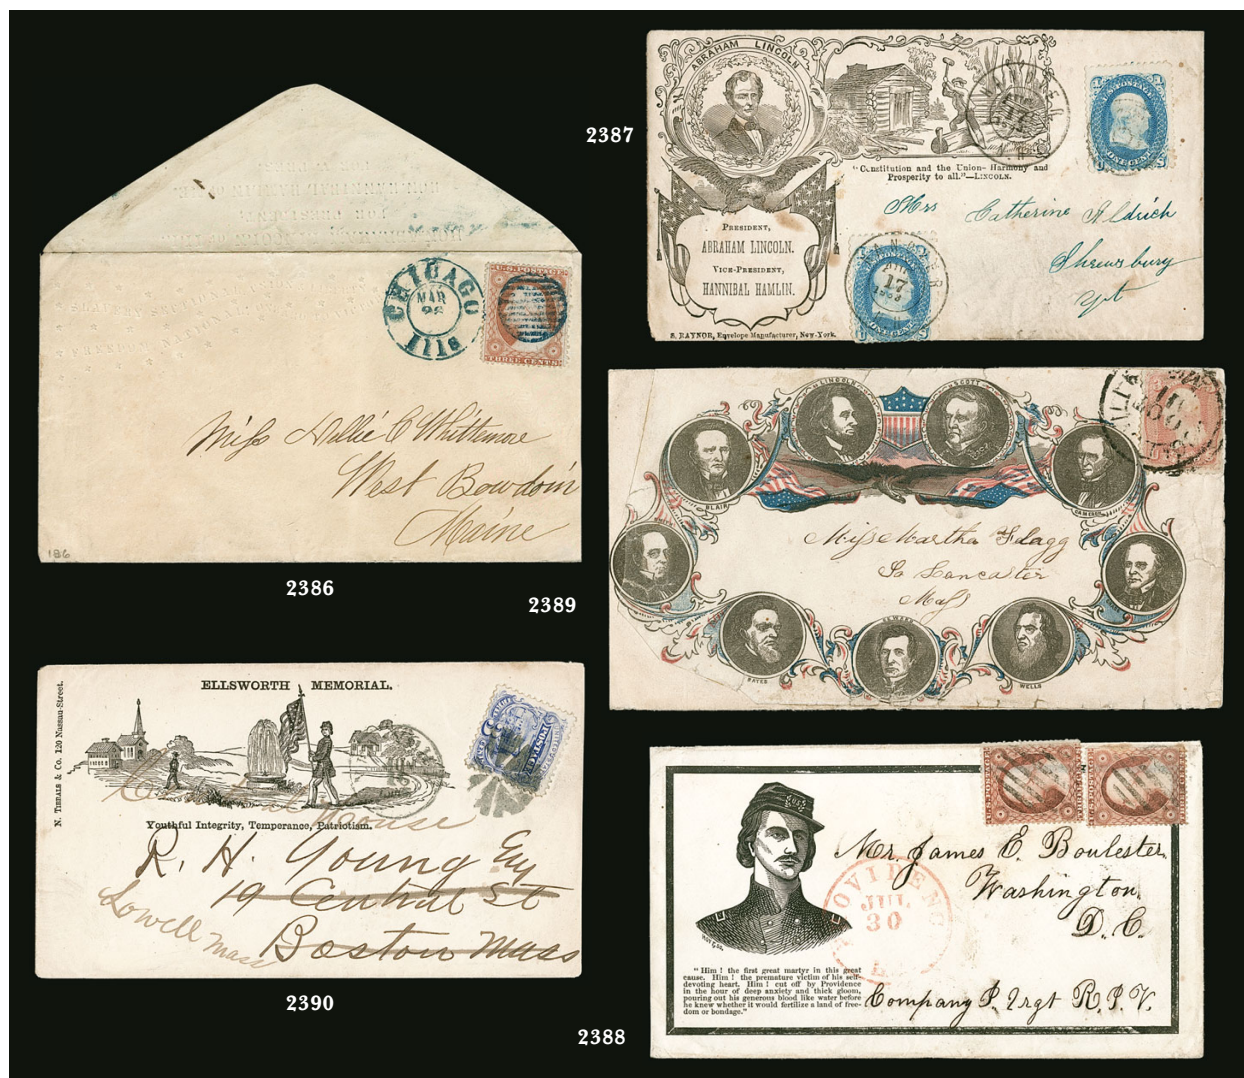 2386
CHICAGO
MAR
26
Ills
U.S. POSTAGE
THREE CENTS
SLAVERY
NATIONAL
FREE
FOR PRESIDENT
Miss Nellie C Whittemore
West Bowdoin
Maine
186
2387
ABRAHAM LINCOLN
"Constitution and the Union—Harmony and
Prosperity to all."—LINCOLN.
PRESIDENT,
ABRAHAM LINCOLN.
VICE-PRESIDENT,
HANNIBAL HAMLIN.
S. RAYNOR, Envelope Manufacturer, New-York.
17
U.S. POSTAGE
ONE CENT
17
Catherine Aldrich
Shrewsbury
2389
LINCOLN
SCOTT
BLAIR
CAMERON
BATES
SEWARD
WELLS
Miss Martha Flagg
So Lancaster
Mass
2390
ELLSWORTH MEMORIAL.
N. TIBBALS & Co. 120 Nassau-Street.
Youthful Integrity, Temperance, Patriotism.
R. H. Young Esq
19 Central St
Boston Mass
Lowell Mass
2388
PROVIDENCE
JUL
30
Mr. James E. Boulester,
Washington,
D. C.
Company I. 1rgt R.I.V.
"Him! the first great martyr in this great
cause. Him! the premature victim of his self-
devoting heart. Him! cut off by Providence
in the hour of deep anxiety and thick gloom,
pouring out his generous blood like water before
he knew whether it would fertilize a land of free-
dom or bondage."